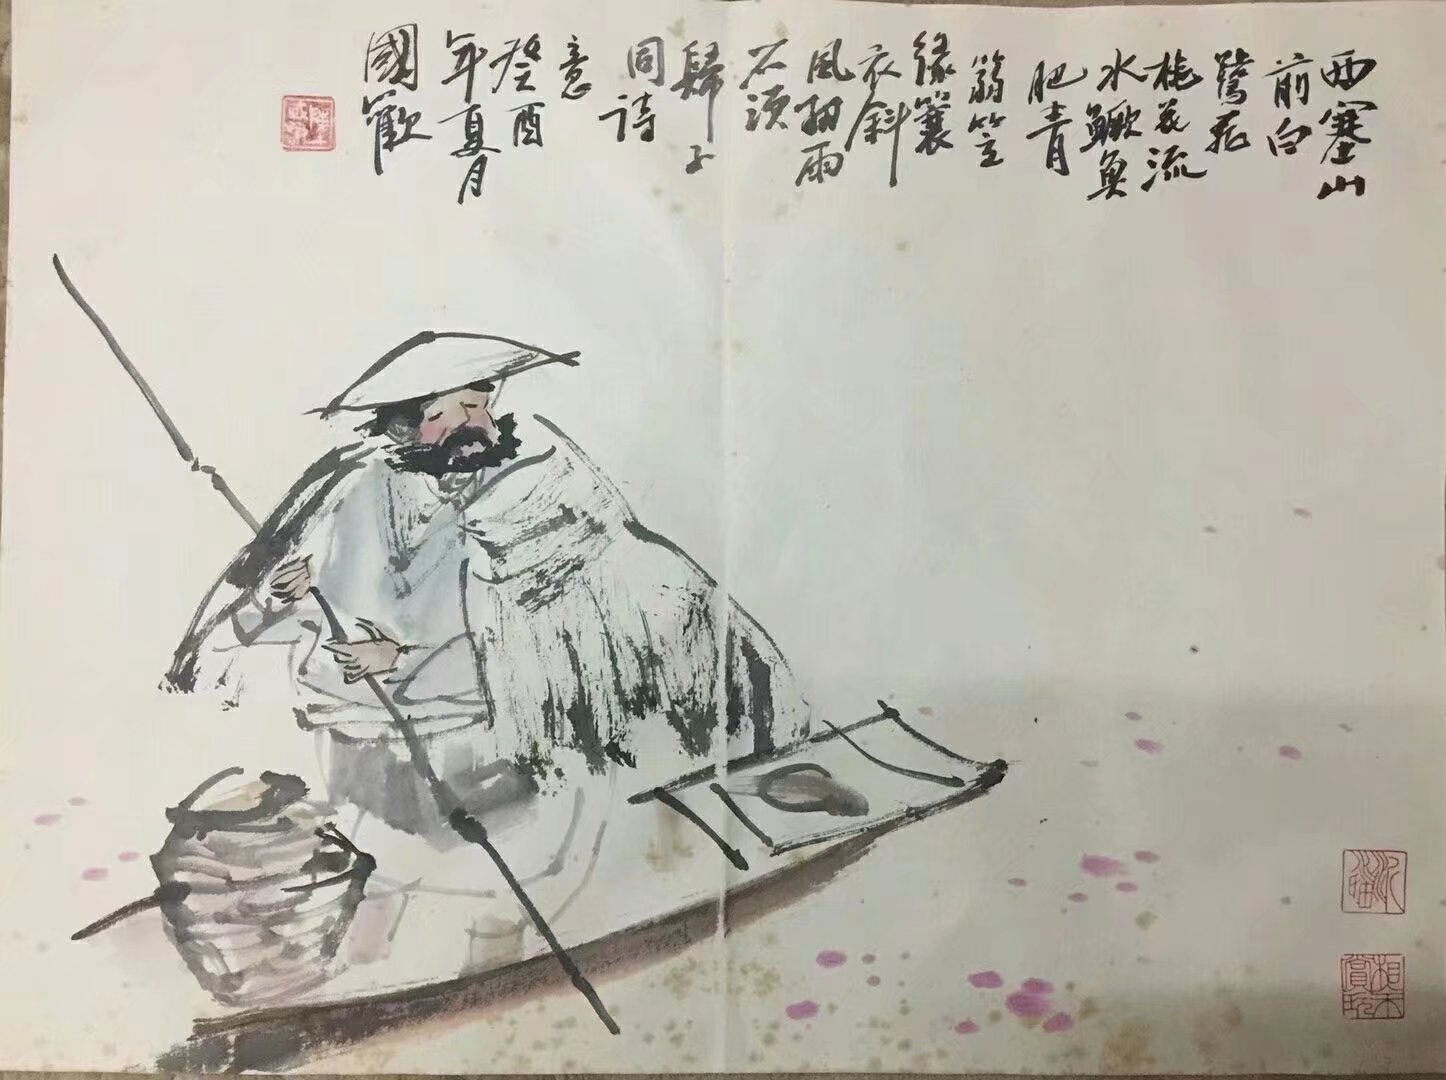 西塞山
前白
鷺飛
桃花流
水鱖魚
肥青
篛笠
緑簑
衣斜
風細雨
不須
歸子
同詩
意
癸酉
年夏月
國歡